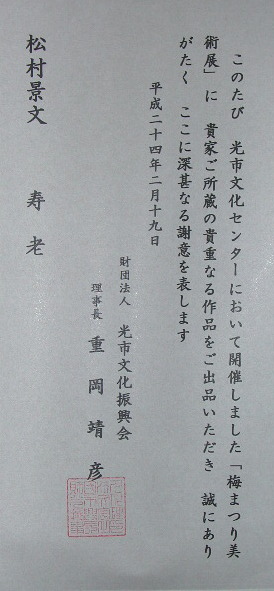 このたび　光市文化センターにおいて開催しました「梅まつり美
術展」に　貴家ご所蔵の貴重なる作品をご出品いただき　誠にあり
がたく　ここに深甚なる謝意を表します
平成二十四年二月十九日
財団法人　光市文化振興会
理事長　重岡靖彦
松村景文　寿老